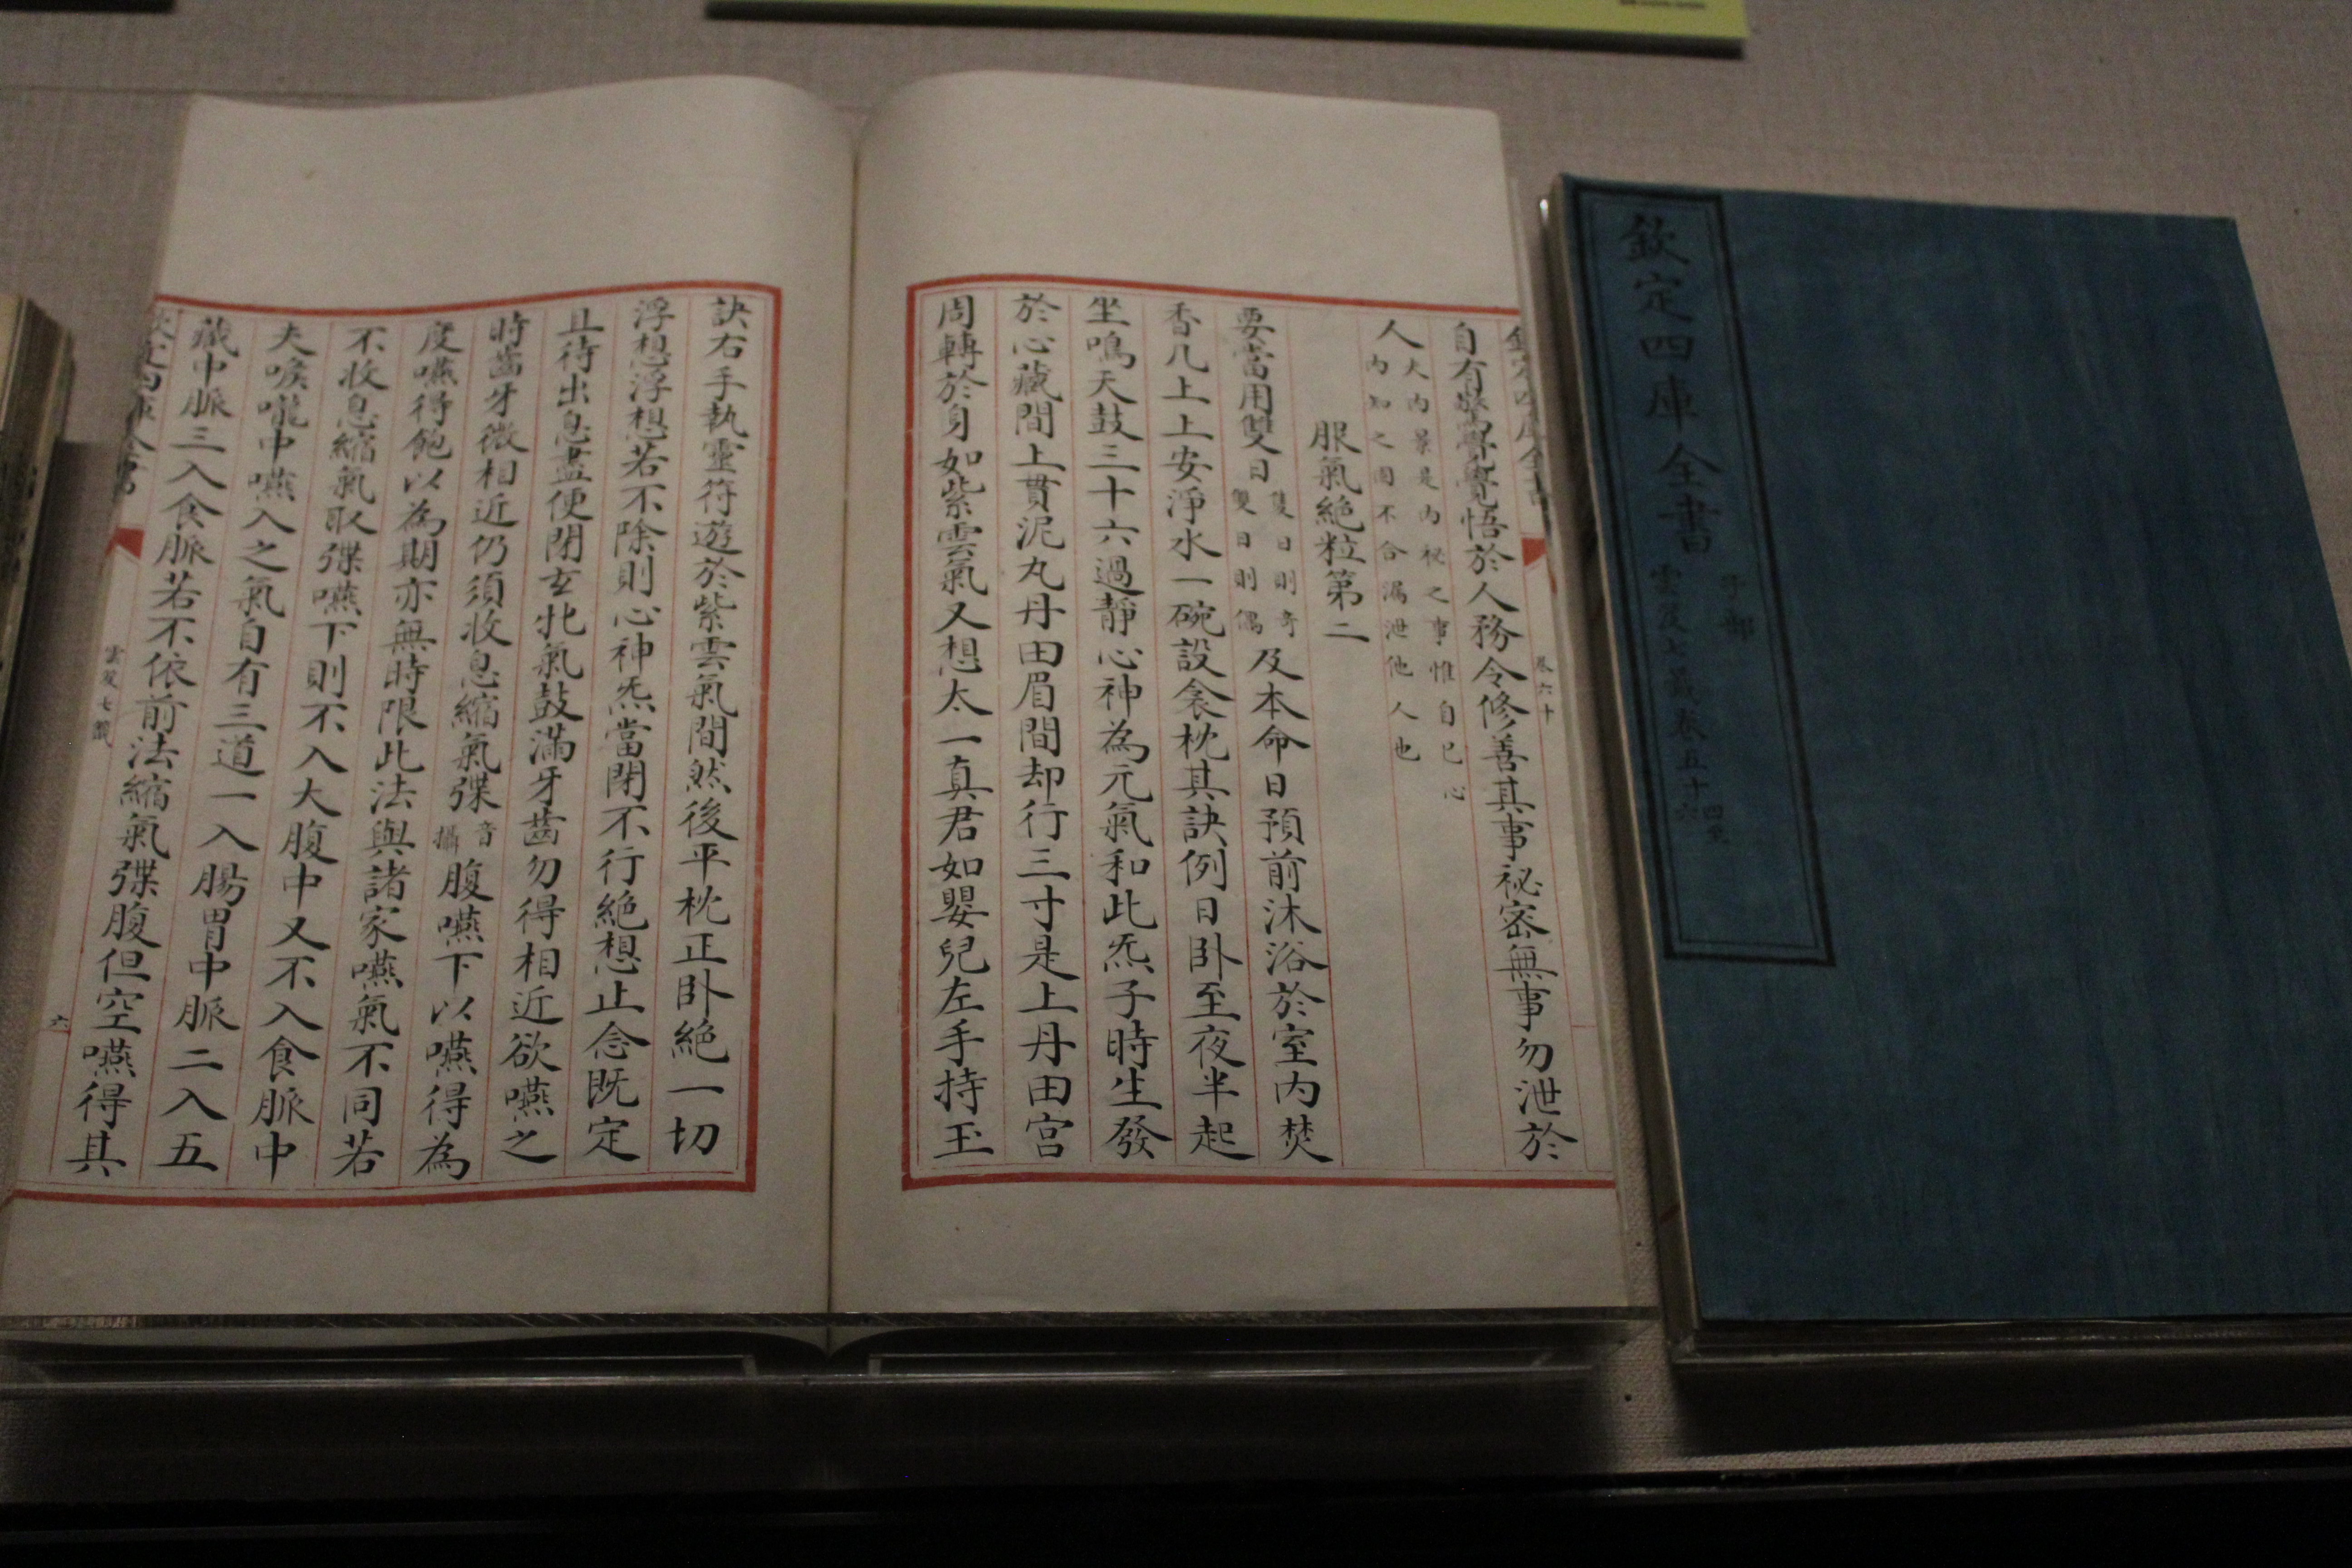 欽定四庫全書
子部
雲笈七籤卷五十四至六
欽定四庫全書
卷六十
自有驚覺覺悟於人務令修善其事祕密無事勿泄於
人夫內景是內祕之事惟自已心
內知之固不合漏泄他人也
服氣絶粒第二
要當用雙日隻日則奇
雙日則偶及本命日預前沐浴於室內焚
香几上上安淨水一碗設衾枕其訣例日卧至夜半起
坐鳴天鼓三十六過靜心神為元氣和此炁子時生發
於心藏間上貫泥丸丹田眉間却行三寸是上丹田宫
周轉於身如紫雲氣又想太一真君如嬰兒左手持玉
訣右手執靈符遊於紫雲氣間然後平枕正卧絶一切
浮想浮想若不除則心神炁當閉不行絶想止念既定
且待出息盡便閉玄牝氣鼓滿牙齒勿得相近欲嚥之
時齒牙微相近仍須收息縮氣弽音
攝腹嚥下以嚥得為
度嚥得飽以為期亦無時限此法與諸家嚥氣不同若
不收息縮氣取弽嚥下則不入大腹中又不入食脈中
夫喉嚨中嚥入之氣自有三道一入腸胃中脈二入五
藏中脈三入食脈若不依前法縮氣弽腹但空嚥得其
雲笈七籤
六